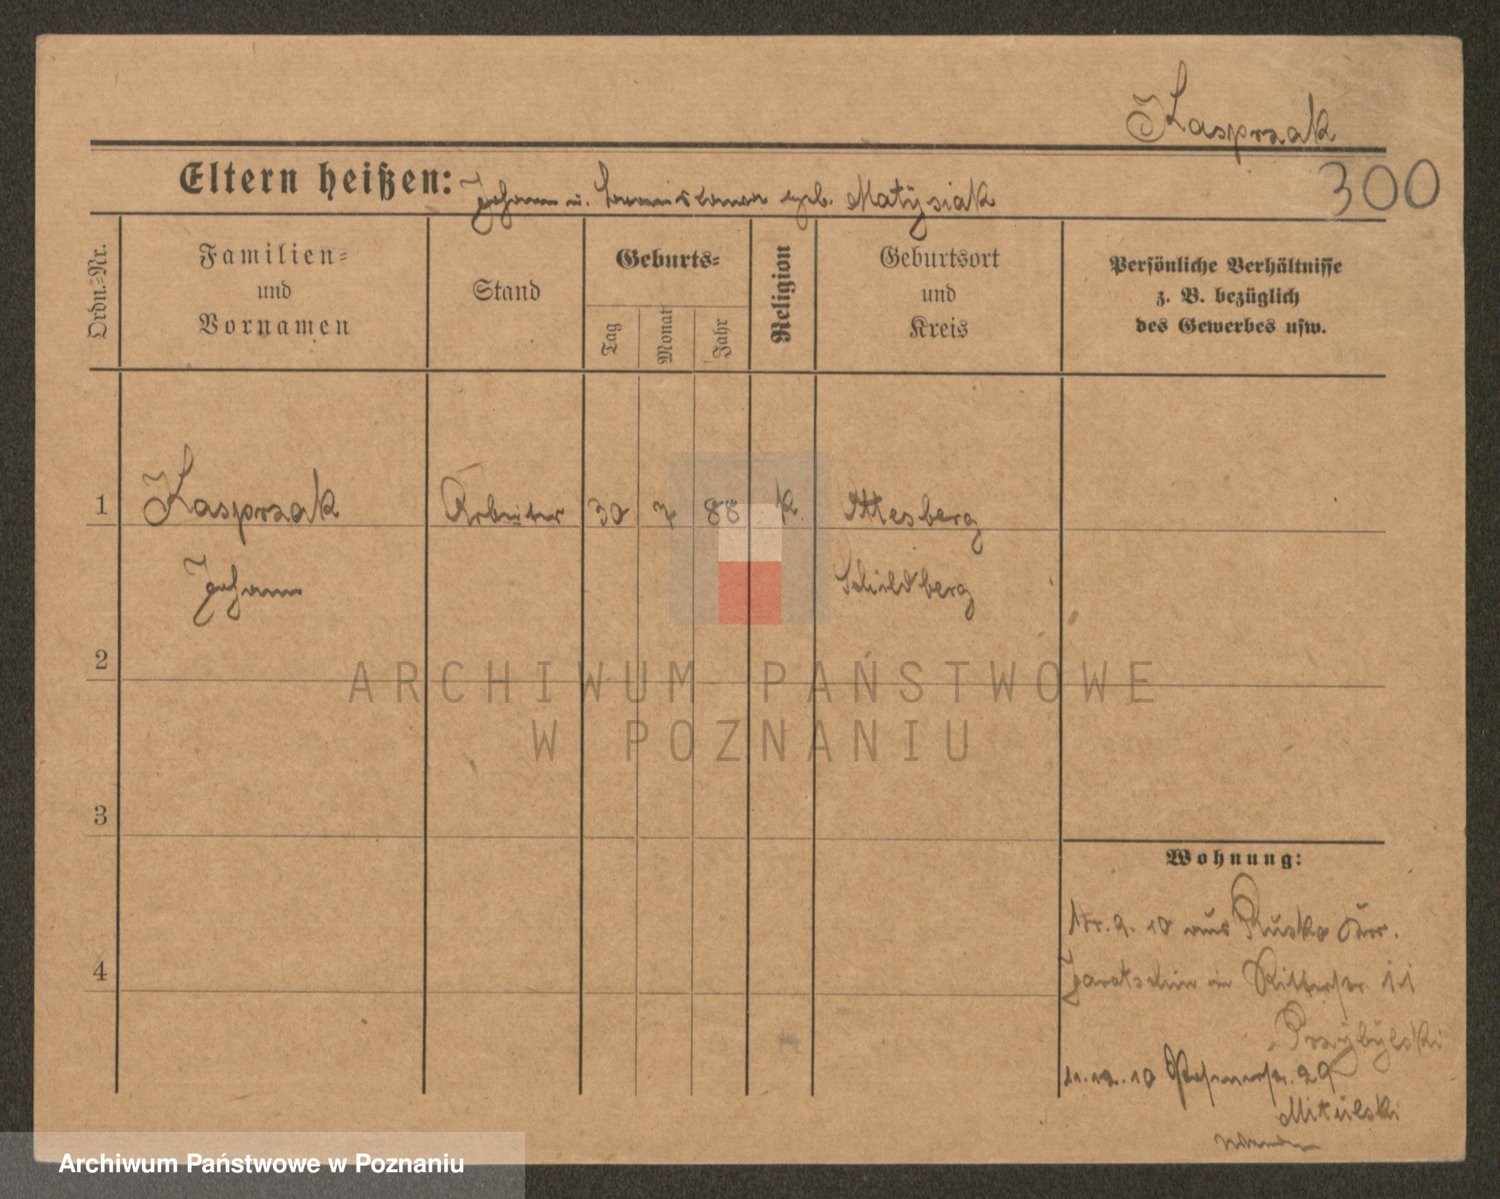 Kasprzak
300
Eltern heißen: Johann u. geb. Matysiak
Ordn.-Nr.
Familien- und Vornamen
Stand
Geburts-
Tag
Monat
Jahr
Religion
Geburtsort und Kreis
Persönliche Verhältnisse
z. B. bezüglich
des Gewerbes usw.
1 Kasprzak Arbeiter 30 7 88 k
Johann Schildberg
2
3
4
Wohnung:
9. 10 aus Rusko
Jarotschin in Ritterstr. 11
Przybylski
11.12.10 Posenerstr. 29
Mitulski
ARCHIWUM PAŃSTWOWE
W POZNANIU
Archiwum Państwowe w Poznaniu